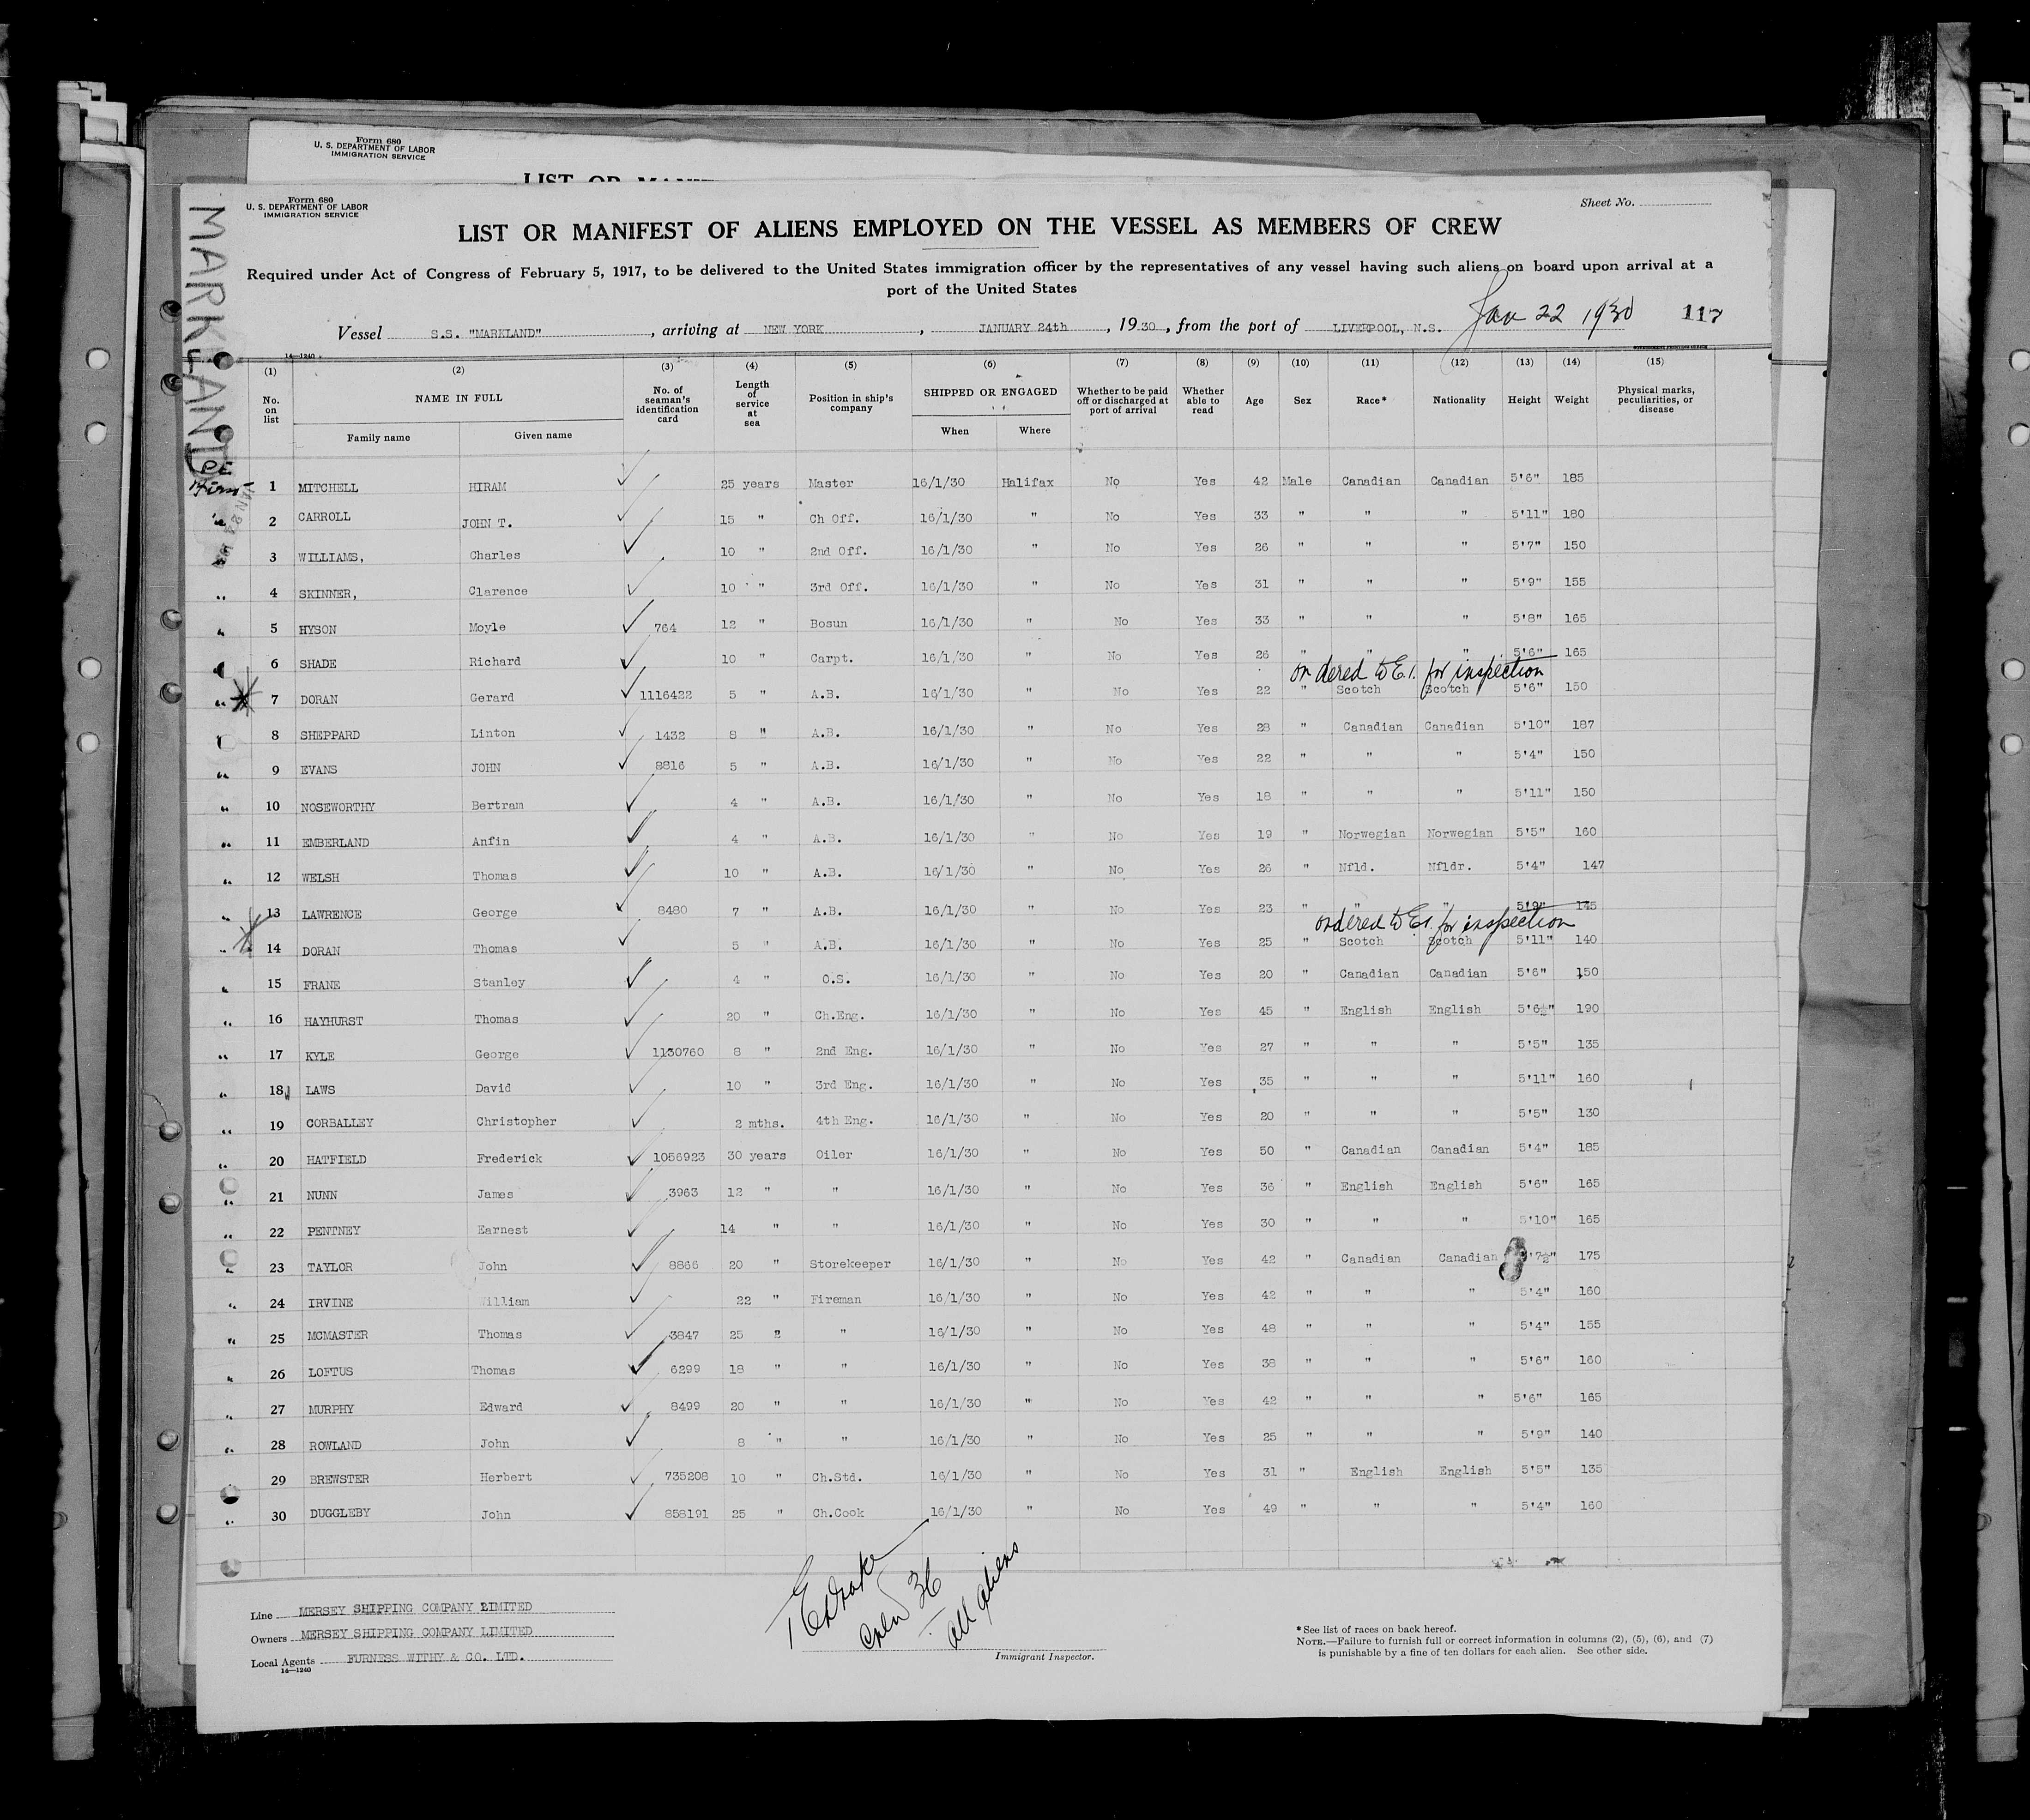 Form 680
U. S. DEPARTMENT OF LABOR
IMMIGRATION SERVICE
LIST OR
Form 680
U. S. DEPARTMENT OF LABOR
IMMIGRATION SERVICE
Sheet No.
MARKLAND
LIST OR MANIFEST OF ALIENS EMPLOYED ON THE VESSEL AS MEMBERS OF CREW
Required under Act of Congress of February 5, 1917, to be delivered to the United States immigration officer by the representatives of any vessel having such aliens on board upon arrival at a
port of the United States
Jan 22 1930 117
Vessel S.S. "MARKLAND", arriving at NEW YORK, JANUARY 24th, 1930, from the port of LIVERPOOL, N.S.
14—1240
(1) (2) (3) (4) (5) (6) (7) (8) (9) (10) (11) (12) (13) (14) (15)
No. on list NAME IN FULL Family name Given name No. of seaman's identification card Length of service at sea Position in ship's company SHIPPED OR ENGAGED When Where Whether to be paid off or discharged at port of arrival Whether able to read Age Sex Race* Nationality Height Weight Physical marks, peculiarities, or disease
PE
1 MITCHELL HIRAM 25 years Master 16/1/30 Halifax No Yes 42 Male Canadian Canadian 5'6" 185
2 CARROLL JOHN T. 15 " Ch Off. 16/1/30 " No Yes 33 " " " 5'11" 180
3 WILLIAMS, Charles 10 " 2nd Off. 16/1/30 " No Yes 26 " " " 5'7" 150
4 SKINNER, Clarence 10 " 3rd Off. 16/1/30 " No Yes 31 " " " 5'9" 155
5 HYSON Moyle 764 12 " Bosun 16/1/30 " No Yes 33 " " " 5'8" 165
6 SHADE Richard 10 " Carpt. 16/1/30 " No Yes 26 " " " 5'6" 165
ordered to E.I. for inspection
7 DORAN Gerard 1116422 5 " A.B. 16/1/30 " No Yes 22 " Scotch Scotch 5'6" 150
8 SHEPPARD Linton 1432 8 " A.B. 16/1/30 " No Yes 28 " Canadian Canadian 5'10" 187
9 EVANS JOHN 8816 5 " A.B. 16/1/30 " No Yes 22 " " " 5'4" 150
10 NOSEWORTHY Bertram 4 " A.B. 16/1/30 " No Yes 18 " " " 5'11" 150
11 EMBERLAND Anfin 4 " A.B. 16/1/30 " No Yes 19 " Norwegian Norwegian 5'5" 160
12 WELSH Thomas 10 " A.B. 16/1/30 " No Yes 26 " Nfld. Nfldr. 5'4" 147
13 LAWRENCE George 8480 7 " A.B. 16/1/30 " No Yes 23 " " " 5'9" 145
ordered to E.I. for inspection
14 DORAN Thomas 5 " A.B. 16/1/30 " No Yes 25 " Scotch Scotch 5'11" 140
15 FRANE Stanley 4 " O.S. 16/1/30 " No Yes 20 " Canadian Canadian 5'6" 150
16 HAYHURST Thomas 20 " Ch.Eng. 16/1/30 " No Yes 45 " English English 5'6½" 190
17 KYLE George 1130760 8 " 2nd Eng. 16/1/30 " No Yes 27 " " " 5'5" 135
18 LAWS David 10 " 3rd Eng. 16/1/30 " No Yes 35 " " " 5'11" 160
19 CORBALLEY Christopher 2 mths. 4th Eng. 16/1/30 " No Yes 20 " " " 5'5" 130
20 HATFIELD Frederick 1056923 30 years Oiler 16/1/30 " No Yes 50 " Canadian Canadian 5'4" 185
21 NUNN James 3963 12 " " 16/1/30 " No Yes 36 " English English 5'6" 165
22 PENTNEY Earnest 14 " " 16/1/30 " No Yes 30 " " " 5'10" 165
23 TAYLOR John 8866 20 " Storekeeper 16/1/30 " No Yes 42 " Canadian Canadian '7½" 175
24 IRVINE William 22 " Fireman 16/1/30 " No Yes 42 " " " 5'4" 160
25 MCMASTER Thomas 3847 25 " " 16/1/30 " No Yes 48 " " " 5'4" 155
26 LOFTUS Thomas 6299 18 " " 16/1/30 " No Yes 38 " " " 5'6" 160
27 MURPHY Edward 8499 20 " " 16/1/30 " No Yes 42 " " " 5'6" 165
28 ROWLAND John 8 " " 16/1/30 " No Yes 25 " " " 5'9" 140
29 BREWSTER Herbert 735208 10 " Ch.Std. 16/1/30 " No Yes 31 " English English 5'5" 135
30 DUGGLEBY John 858191 25 " Ch.Cook 16/1/30 " No Yes 49 " " " 5'4" 160
Crew 36
all aliens
Line MERSEY SHIPPING COMPANY LIMITED
Owners MERSEY SHIPPING COMPANY LIMITED
Local Agents FURNESS WITHY & CO. LTD.
14—1240
Immigrant Inspector.
*See list of races on back hereof.
NOTE.—Failure to furnish full or correct information in columns (2), (5), (6), and (7)
is punishable by a fine of ten dollars for each alien. See other side.